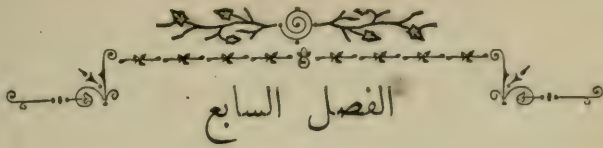 الفصل السابع